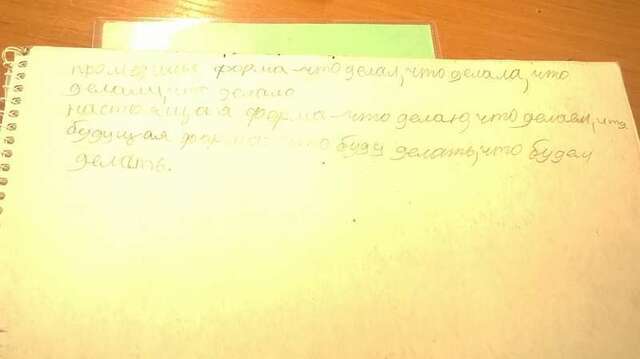 форма - что делал, что делала, что
делали, что делало
настоящая форма - что делаю, что делаем, что
будущая форма - что буду делать, что будем
делать.